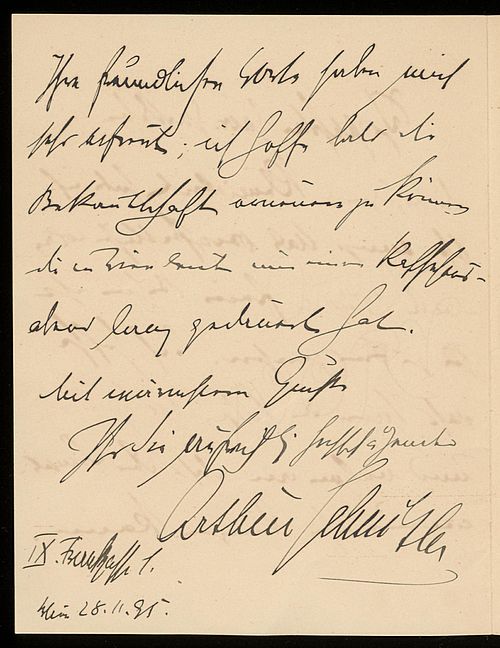 Ihre freundlichen Worte haben mich
sehr erfreut; ich hoffe bald die
Bekanntschaft erneuern zu können
die in Wien leider nur einen Kaffeehaus-
abend lang gedauert hat.
Mit wärmstem Gruße
Ihr Sie aufrichtig hochschätzender
Arthur Schnitzler
IX. Frankgasse 1.
Wien 28.11.95.